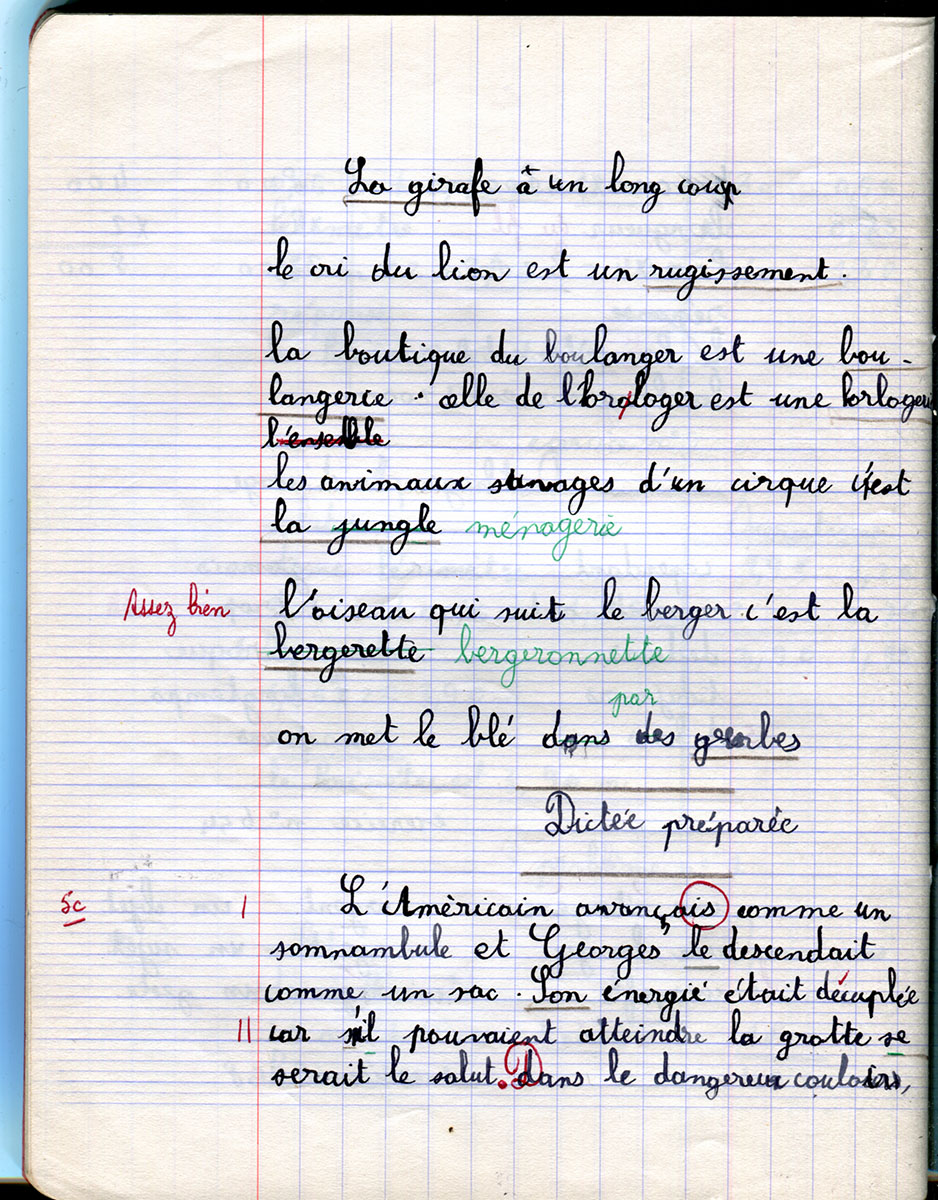 La girafe à un long coup
le cri du lion est un rugissement.
la boutique du boulanger est une bou-
langerie. celle de l'horloger est une horloger
l'ensemble
les animaux sauvages d'un cirque c'est
la jungle ménagerie
Assez bien l'oiseau qui suit le berger c'est la
bergerette bergeronnette
par
on met le blé dans des gerbes
Dictée préparée
5c I L'Américain avançais comme un
somnambule et Georges le descendait
comme un sac. Son énergie était décuplée
II car s'il pouvaient atteindre la grotte se
serait le salut. dans le dangereux couloirs,